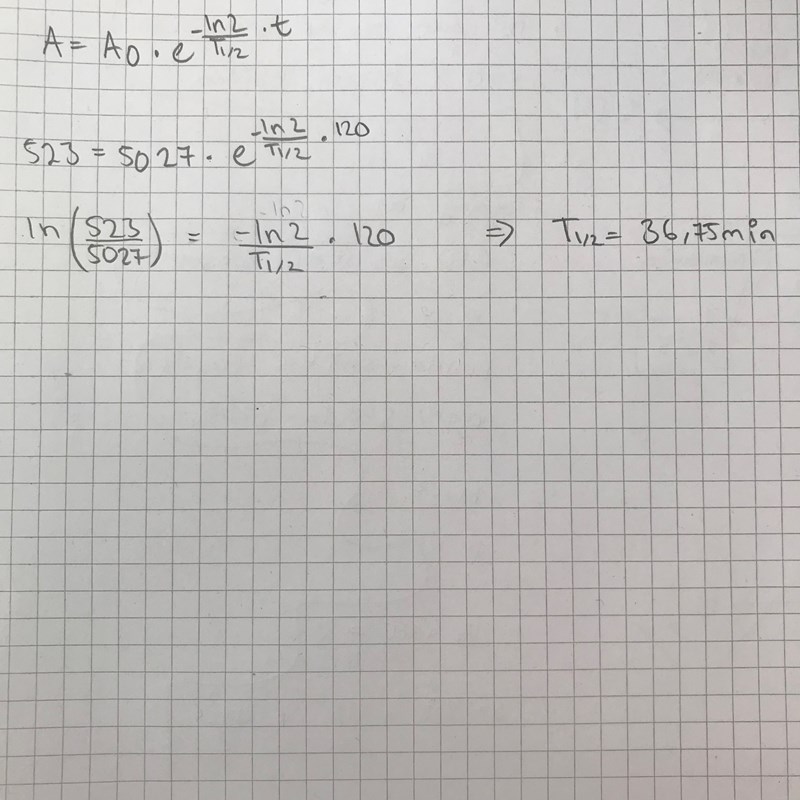 A = A₀ · e^(-ln2/T₁/₂ · t)
523 = 5027 · e^(-ln2/T₁/₂ · 120)
ln(523/5027) = -ln2/T₁/₂ · 120 ⇒ T₁/₂ = 36,75min